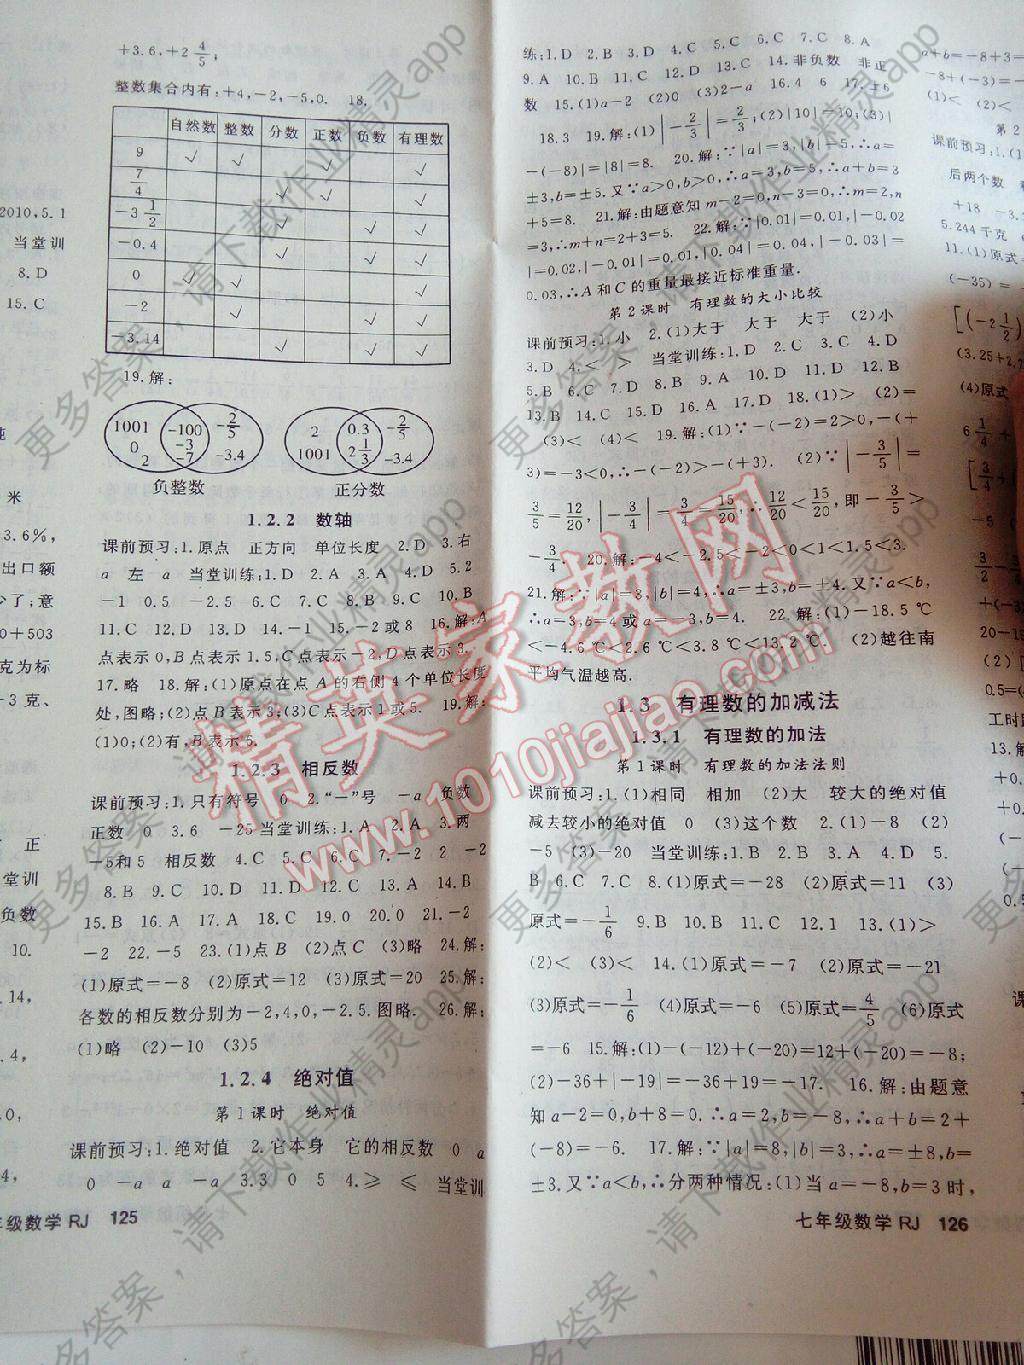 +3.6,+2 4/5;
整数集合内有:+4,-2,-5,0. 18.
自然数 整数 分数 正数 负数 有理数
9 ✓ ✓ ✓ ✓
7/4 ✓ ✓ ✓
-3 1/2 ✓ ✓ ✓
-0.4 ✓ ✓ ✓
0 ✓ ✓ ✓
-2 ✓ ✓ ✓
-3.14 ✓ ✓ ✓
19.解:
1001 0 2 -100 -3 -7 -2/5 -3.4
负整数
2 1001 0.3 2 1/3 -2/5 -3.4
正分数
1.2.2 数轴
课前预习:1.原点 正方向 单位长度 2.D 3.右
a 左 a 当堂训练:1.D 2.A 3.A 4.D 5.2
-1 0.5 -2.5 6.C 7.C 8.C 9.C 10.B
11.C 12.D 13.D 14.-1 15.-2或8 16.解:A
点表示0,B点表示1.5,C点表示-2,D点表示3.
17.略 18.解:(1)原点在点A的右侧4个单位长度
处,图略;(2)点B表示3;(3)C点表示1或5. 19.解:
(1)0;(2)有,B表示5.
1.2.3 相反数
课前预习:1.只有符号 0 2."-"号 -a 负数
正数 0 3.6 -25 当堂训练:1.A 2.A 3.两
-5和5 相反数 4.C 5.C 6.C 7.-2 2 -2
8.B 9.C 10.D 11.D 12.C 13.A 14.B
15.B 16.A 17.A 18.C 19.0 20.0 21.-2
-2 22.-5 23.(1)点B (2)点C (3)略 24.解:
(1)原式=-8 (2)原式=12 (3)原式=20 25.解:
各数的相反数分别为-2,4,0,-2.5.图略. 26.解:
(1)略 (2)-10 (3)5
1.2.4 绝对值
第1课时 绝对值
课前预习:1.绝对值 2.它本身 它的相反数 0 a
0 -a a -a 3.3 0 5 4.≥ ≤ 当堂训
年级数学 RJ 125
练:1.D 2.B 3.D 4.C 5.C 6.C 7.C 8.A
9.A 10.B 11.C 12.D 13.C 14.非负数 非正
数 15.(1)a-2 (2)0 (3)2-a 16.4 6 17.±6
18.3 19.解:(1)|-2/3|=2/3;(2)|10|=10;(3)|
-(-8)|=|8|=8. 20.解:∵|a|=3,|b|=5,∴a=
±3,b=±5.又∵a>0,b>0,∴a=3,b=5,∴a+b=3
+5=8. 21.解:由题意知m-2=0,n-3=0,∴m=2,n
=3,∴m+n=2+3=5. 22.解:∵|0.01|=0.01,|-0.02
|=0.02,|-0.01|=0.01,|0.04|=0.04,|-0.03|=
0.03,∴A和C的重量最接近标准重量.
第2课时 有理数的大小比较
课前预习:1.小 2.(1)大于 大于 大于 (2)小
3.D 4.< > 当堂训练:1.D 2.C 3.C 4.D
5.B 6.C 7.D 8.B 9.A 10.D 11.D 12.D
13.B 14.C 15.D 16.A 17.D 18.(1)> (2)=
(3)< (4)< 19.解:(1)∵-(-2)=2>0,-(+
3)=-3<0,∴-(-2)>-(+3). (2)∵|-3/5|=
3/5=12/20,|-3/4|=3/4=15/20,12/20<15/20,即-3/5>
-3/4. 20.解:-4<-2.5<-2<0<1<1.5<3.
21.解:∵|a|=3,|b|=4,∴a=±3,b=±4.又∵a<b,
∴a=3,b=4或a=-3,b=4. 22.解:(1)-18.5℃
<-4.6℃<2.6℃<3.8℃<13.2℃. (2)越往南
平均气温越高.
1.3 有理数的加减法
1.3.1 有理数的加法
第1课时 有理数的加法法则
课前预习:1.(1)相同 相加 (2)大 较大的绝对值
减去较小的绝对值 0 (3)这个数 2.(1)-8 (2)
-5 (3)-20 当堂训练:1.B 2.B 3.A 4.D 5.
B 6.C 7.C 8.(1)原式=-28 (2)原式=11 (3)
原式=-1/6 9.B 10.B 11.C 12.1 13.(1)>
(2)< (3)< 14.(1)原式=-7 (2)原式=-21
(3)原式=-1/6 (4)原式=-6 (5)原式=4/5 (6)原式
=-6 15.解:(1)-(-12)+(-20)=12+(-20)=-8;
(2)-36+|-19|=-36+19=-17. 16.解:由题意
知a-2=0,b+8=0.∴a=2,b=-8,∴a+b=2+
(-8)=-6. 17.解:∵|a|=8,|b|=3,∴a=±8,b=
±3.又∵a<b,∴分两种情况:(1)当a=-8,b=3时,
七年级数学 RJ 126
精英家教网
www.1010jiajiao.com
更多答案,请下载作业精灵app